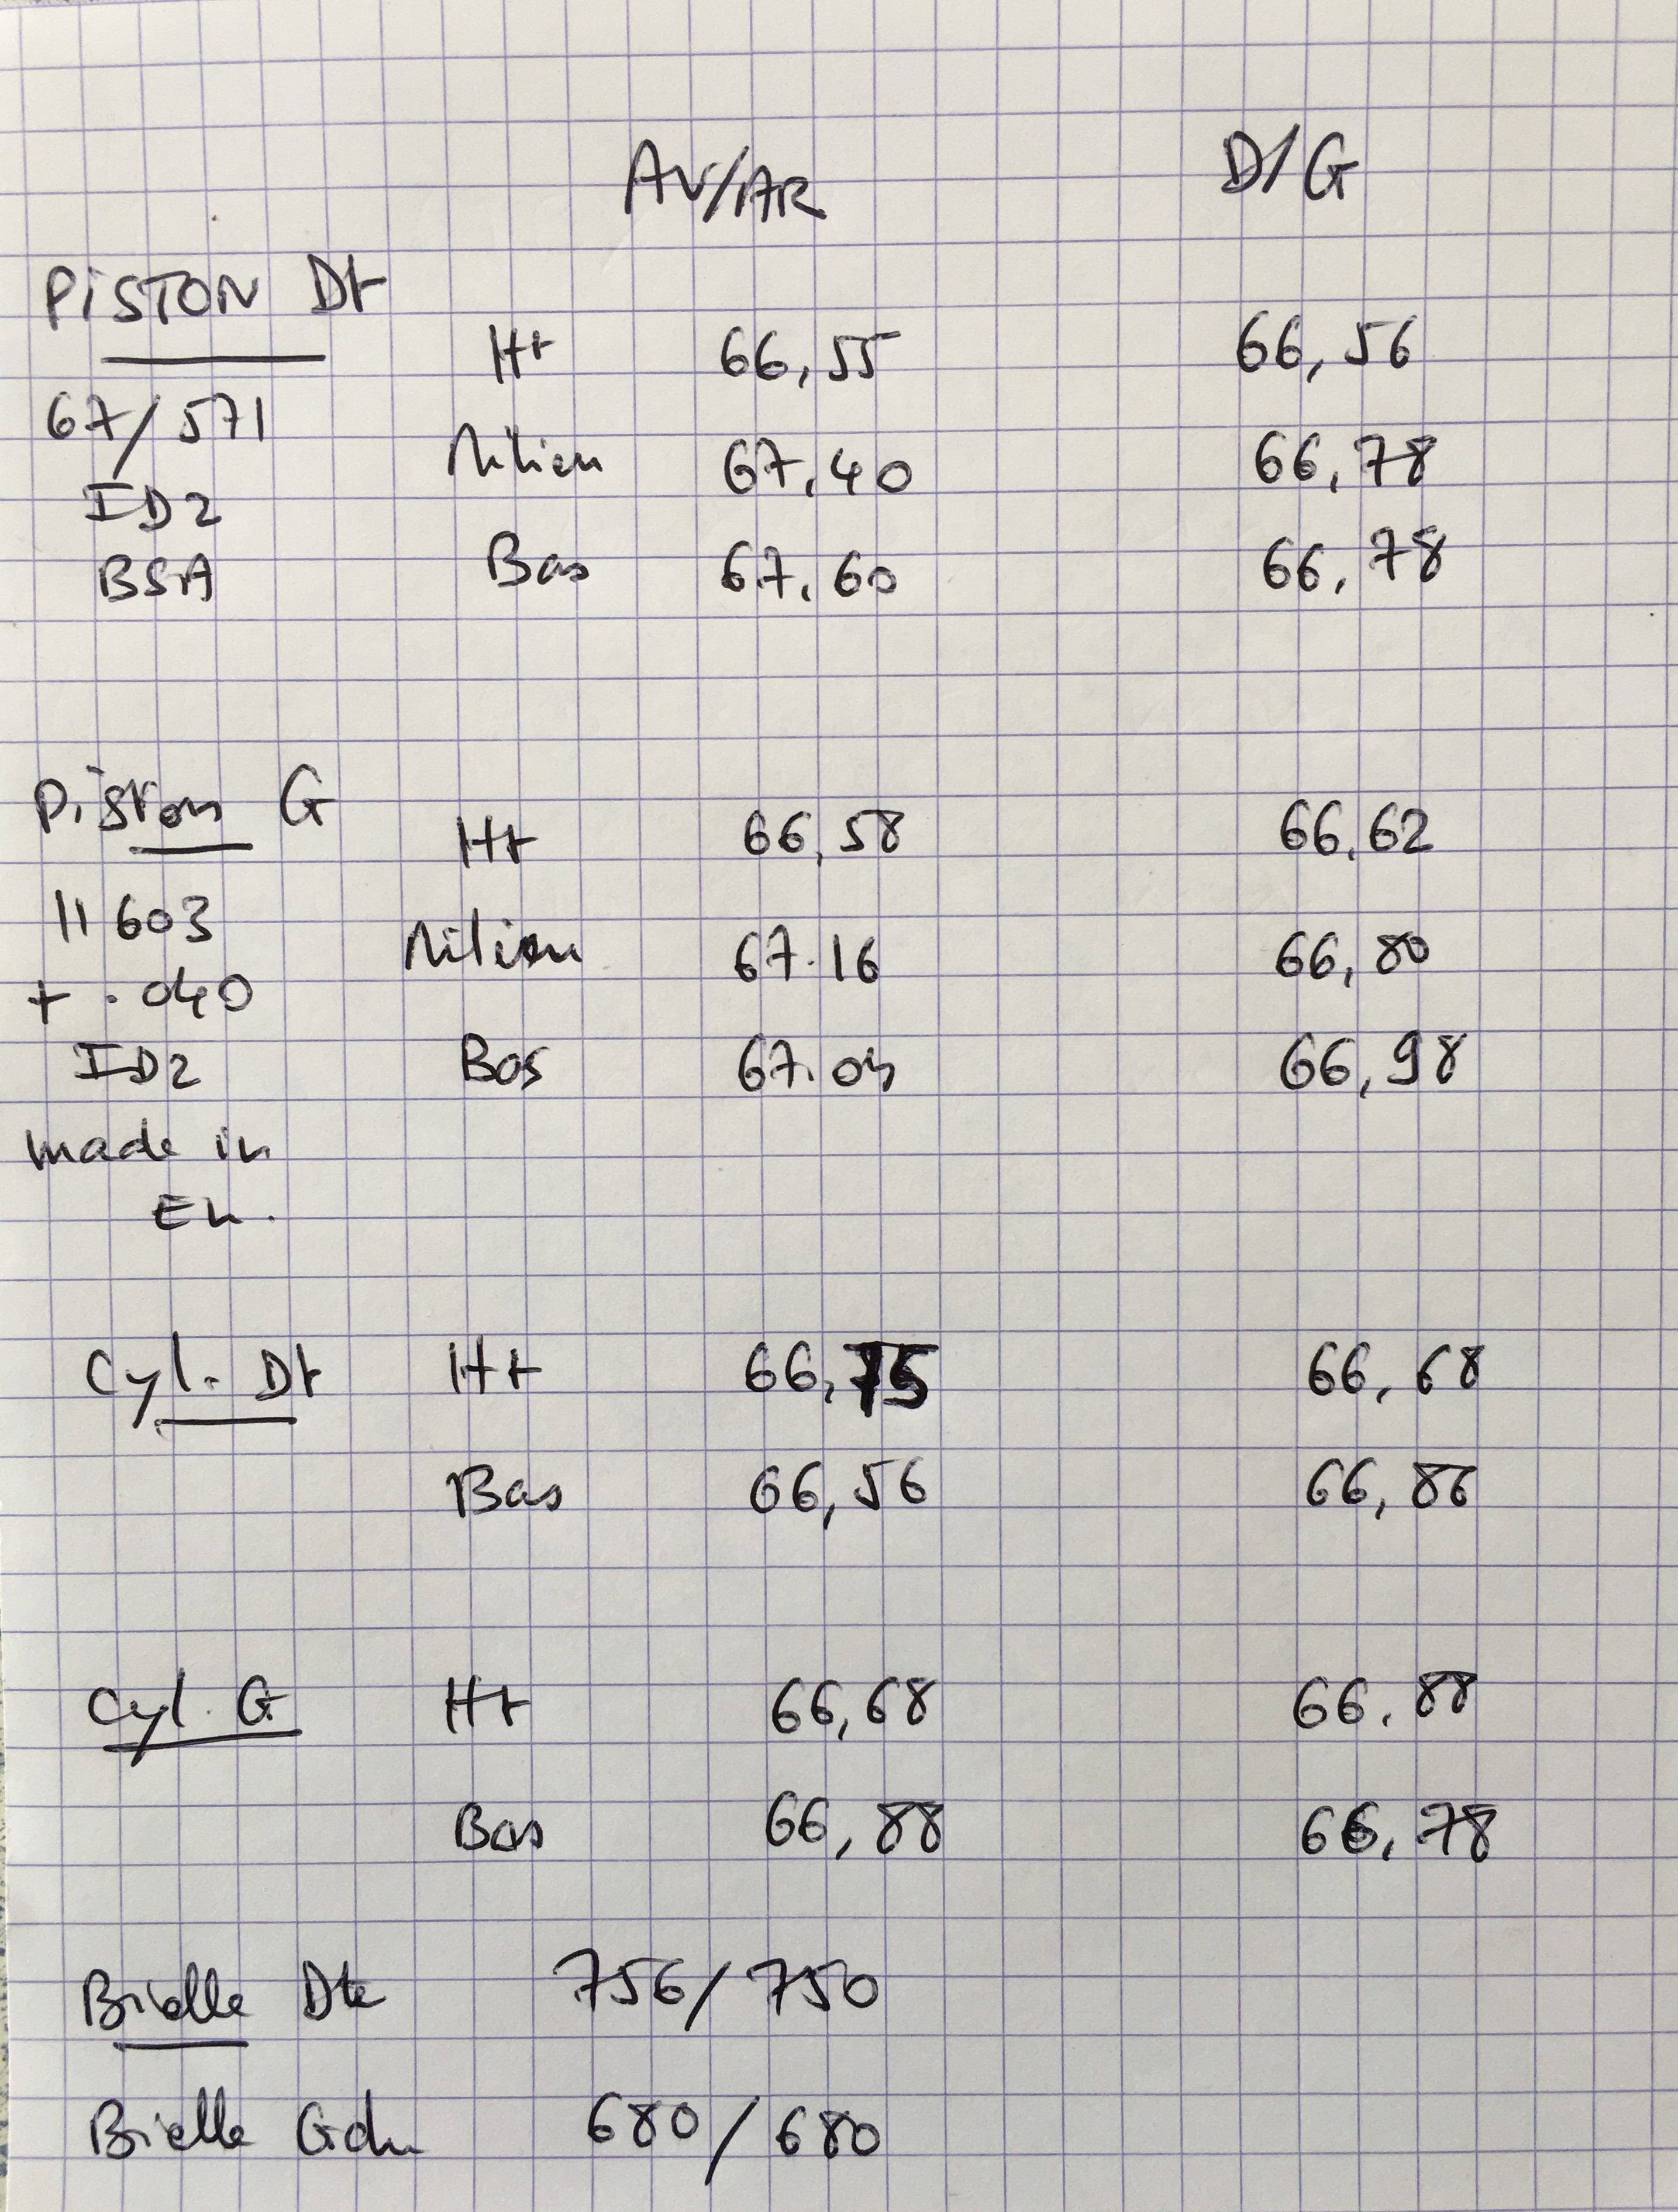 AV/AR D/G
PiSTON Dt
Ht 66,55 66,56
67/571
Milieu 67,40 66,78
ID2
Bas 67,60 66,78
BSA
Piston G
Ht 66,58 66,62
11603
Milieu 67.16 66,80
+ .040
ID2 Bas 67.03 66,98
made in
En.
Cyl. Dt Ht 66,75 66,68
Bas 66,56 66,86
Cyl. G Ht 66,68 66.88
Bas 66,88 66,78
Bielle Dte 756/750
Bielle Gche 680/680